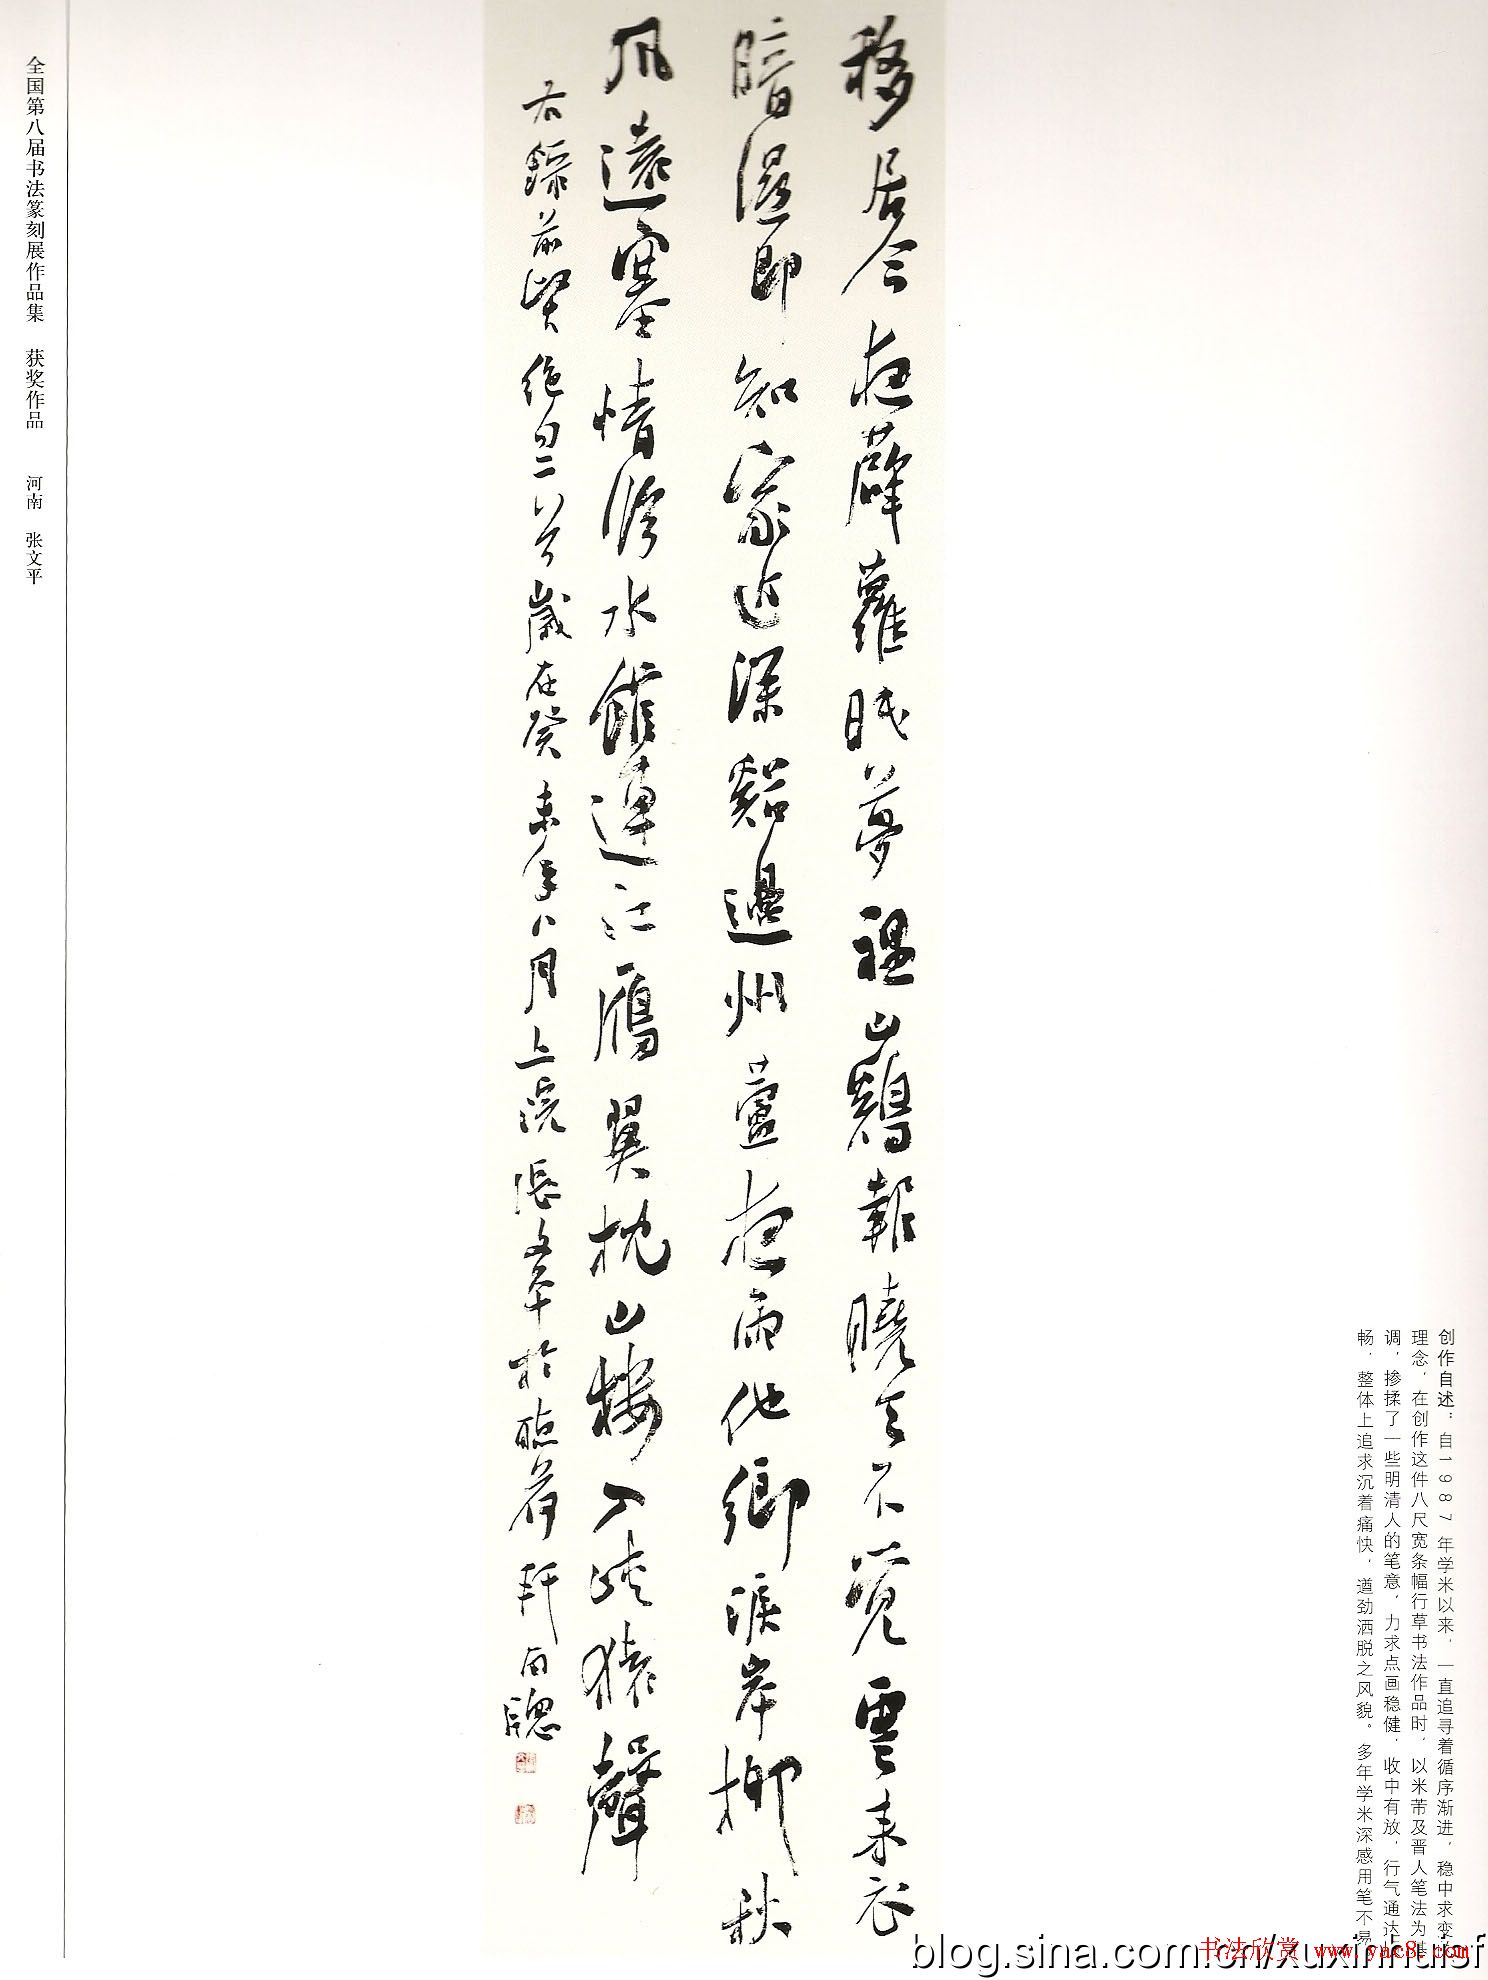 创作自述：自1987年学米以来，一直追寻着循序渐进，稳中求变
理念，在创作这件八尺宽条幅行草书法作品时，以米芾及晋人笔法为基
调，掺揉了一些明清人的笔意，力求点画稳健，收中有放，行气通达
畅，整体上追求沉着痛快，遒劲洒脱之风貌。多年学米深感用笔不易
移居今夜薜蘿眠夢裡山鷄報曉天不覺雲来衣
暗濕即知家近深谿邊州蘆夜雨他鄉淚岸柳秋
風遠塞情臨水館連江雁翼枕山樓入峽猿聲
右錄前賢絕句二首歲在癸未年八月上浣張文平於聽荷軒南牕
全国第八届书法篆刻展作品集 获奖作品 河南 张文平
blog.sina.com.cn/xuxinhuisf
书法欣赏 www.yac8.com